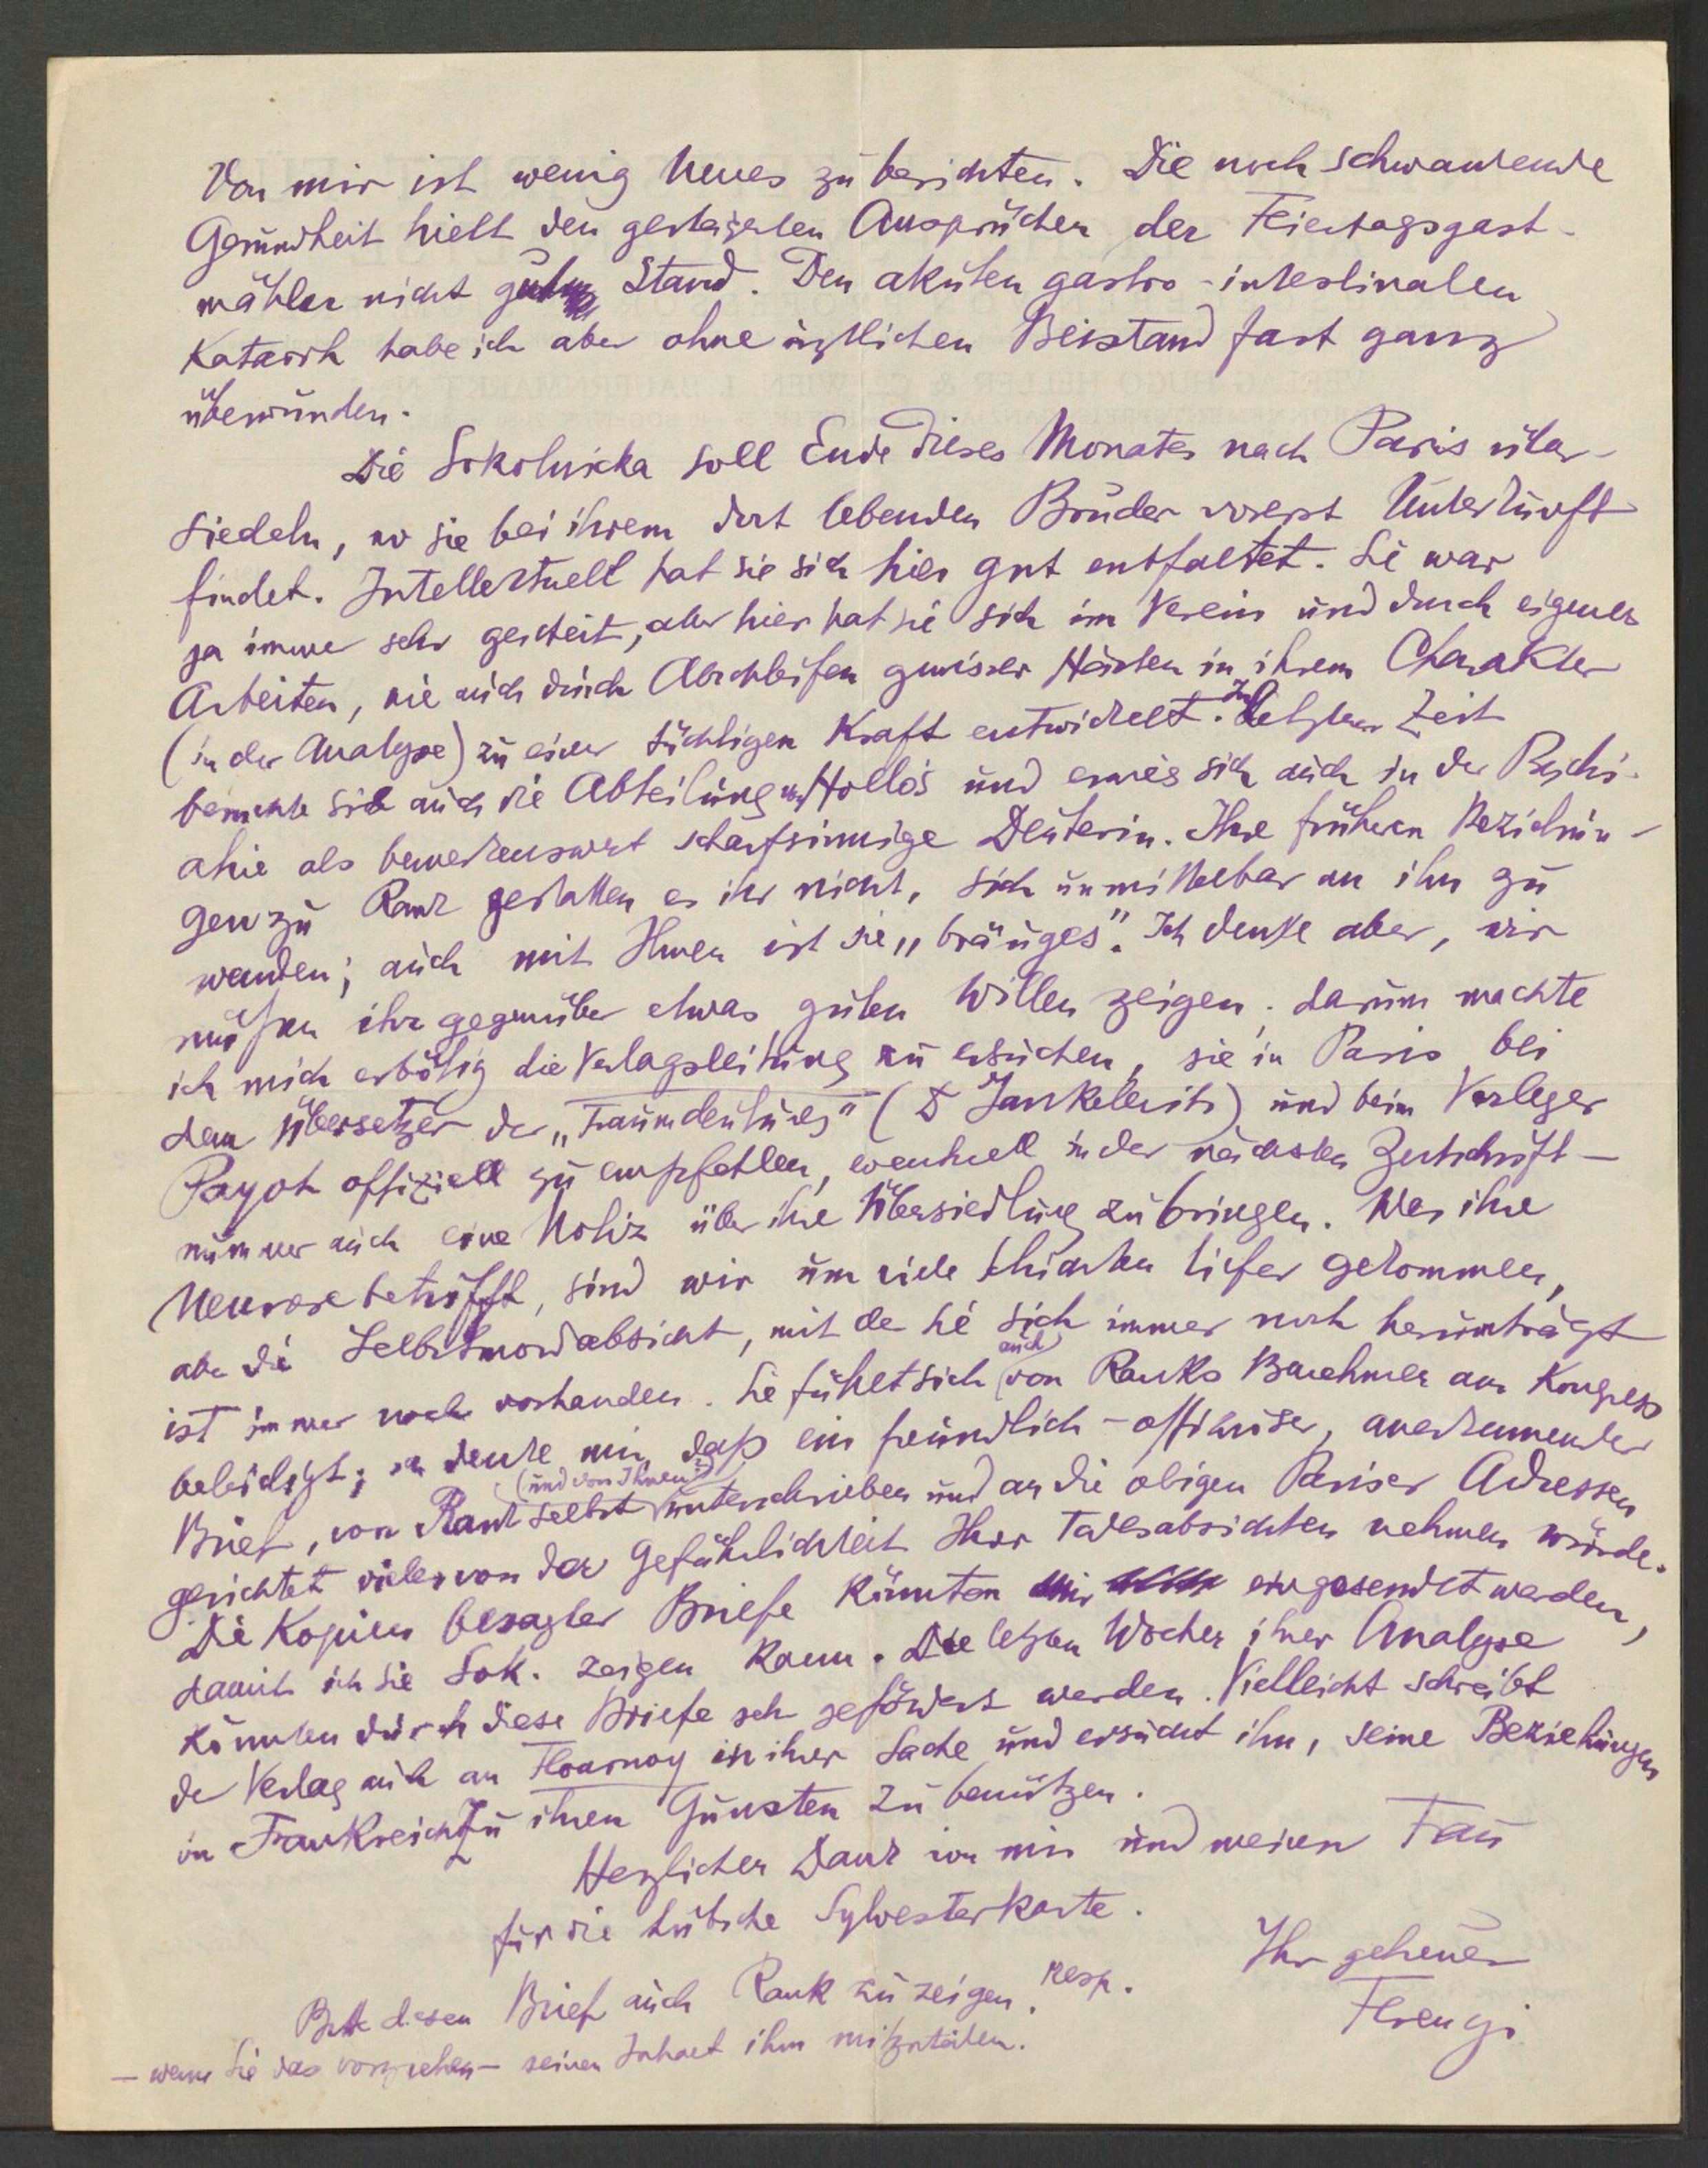 Von mir ist wenig Neues zu berichten. Die noch schwankende
Gesundheit hielt den gesteigerten Ansprüchen der Feiertagsgast-
mähler nicht guten Stand. Den akuten gastro-intestinalen
Katarrh habe ich aber ohne ärztlichen Beistand fast ganz
überwunden.
Die Sokolnicka soll Ende dieses Monates nach Paris über-
siedeln, wo sie bei ihrem dort lebenden Bruder vorerst Unterkunft
findet. Intellektuell hat sie sich hier gut entfaltet. Sie war
ja immer sehr gescheit, aber hier hat sie sich im Verein und durch eigenes
Arbeiten, wie auch durch Abschleifen gewisser Härten in ihrem Charakter
(in der Analyse) zu einer tüchtigen Kraft entwickelt. In letzter Zeit
besuchte sie auch die Abteilung von Hollós und erwies sich auch in der Psychi-
atrie als bemerkenswert scharfsinnige Deuterin. Ihre früheren Beziehun-
gen zu Rank gestatten es ihr nicht, sich unmittelbar an ihn zu
wenden; auch mit Ihnen ist sie „bräuges“. Ich denke aber, wir
müssen ihr gegenüber etwas guten Willen zeigen; darum machte
ich mich erbötig die Verlagsleitung zu ersuchen, sie in Paris bei
dem Übersetzer der „Traumdeutung“ (Dr Jankelevits) und beim Verleger
Payot offiziell zu empfehlen, eventuell in der nächsten Zeitschrift-
nummer auch eine Notiz über ihre Übersiedlung zu bringen. Was ihre
Neurose betrifft, sind wir um viele Schichten tiefer gekommen,
aber die Selbstmordabsicht, mit der sie sich immer noch herumträgt
ist immer noch vorhanden. Sie fühlt sich (auch) von Ranks Benehmen am Kongress
beleidigt; ich denke mir, daß ein freundlich-offiziöser, anerkennender
Brief, von Rank selbst (und von Ihnen?) unterschrieben und an die obigen Pariser Adressen
gerichtet vieles von der Gefährlichkeit Ihrer Todesabsichten nehmen würde.
Die Kopien besagter Briefe könnten mir eingesendet werden,
damit ich sie Sok. zeigen kann. Die letzten Wochen ihrer Analyse
könnten durch diese Briefe sehr gefördert werden. Vielleicht schreibt
der Verlag auch an Flournoy in ihrer Sache und ersucht ihn, seine Beziehungen
in Frankreich zu ihren Gunsten zu benützen.
Herzlichen Dank von mir und meiner Frau
für die hübsche Sylvesterkarte.
Ihr getreuer
Ferenczi
Bitte diesen Brief auch Rank zu zeigen, resp.
– wenn Sie das vorziehen – seinen Inhalt ihm mitzuteilen.